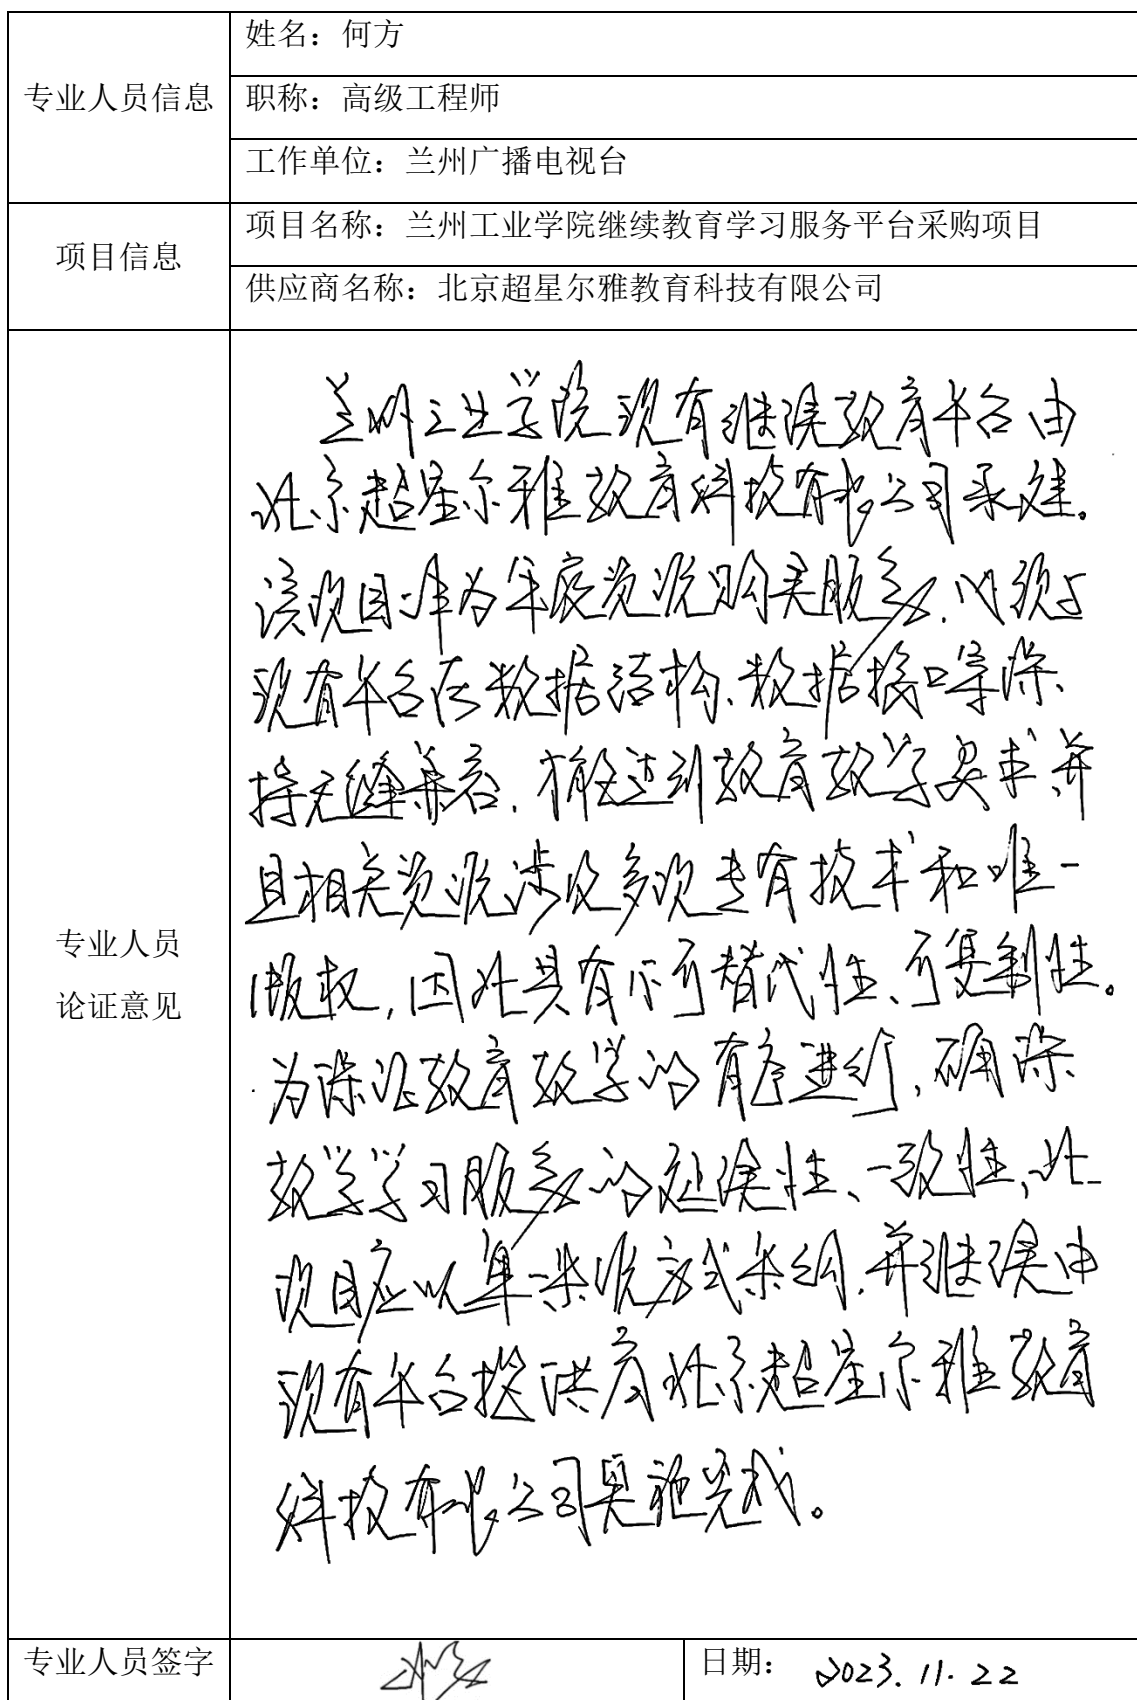 专业人员信息
姓名：何方
职称：高级工程师
工作单位：兰州广播电视台
项目信息
项目名称：兰州工业学院继续教育学习服务平台采购项目
供应商名称：北京超星尔雅教育科技有限公司
专业人员
论证意见
兰州工业学院现有继续教育平台由
北京超星尔雅教育科技有限公司承建。
该项目作为年度资源购买服务，必须与
现有平台在数据结构、数据接口等保
持无缝兼容，才能达到教育教学要求，并
且相关资源涉及多项专有技术和唯一
版权，因此具有不可替代性、可复制性。
为保证教育教学的有序进行，确保
教学学习服务的延续性、一致性，此
项目应以单一来源方式采购，并继续由
现有平台提供商北京超星尔雅教育
科技有限公司实施完成。
专业人员签字
日期： 2023.11.22